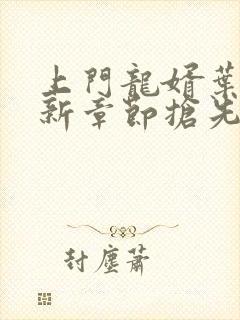 上門龍婿葉
新章節搶先
封塵蕭